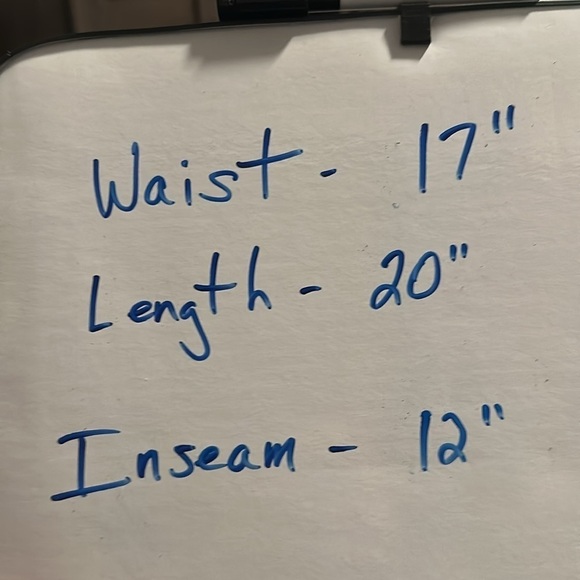 Waist - 17"
Length - 20"
Inseam - 12"